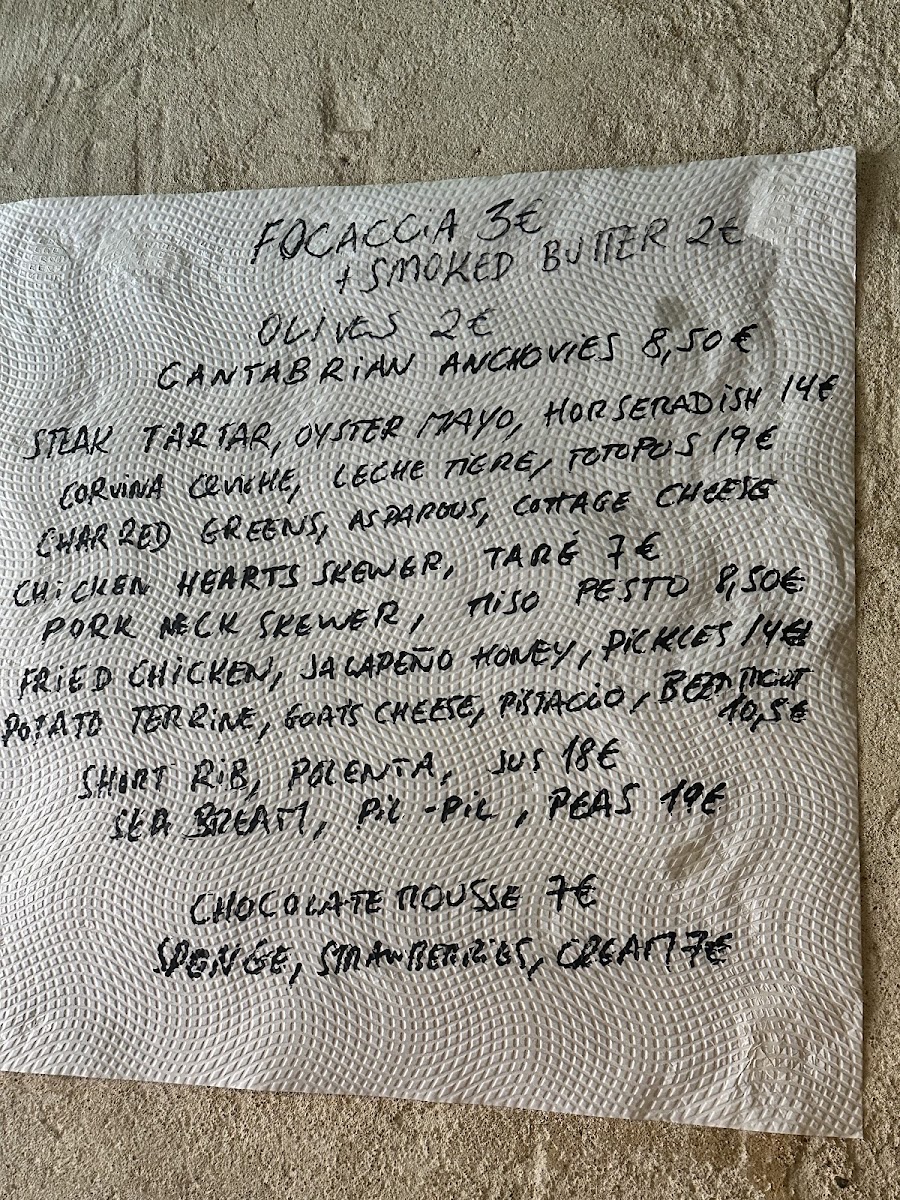 FOCACCiA 3€
+ SMOKED BUTTER 2€
OLiVES 2€
CANTABRiAN ANCHOViES 8,50€
STEAK TARTAR, OYSTER MAYO, HORSERADiSH 14€
CORViNA CEVICHE, LECHE TiGRE, TOTOPOS 19€
CHARRED GREENS, ASPARGUS, COTTAGE CHEESE
CHiCKEN HEARTS SKEWER, TARÉ 7€
PORK NECK SKEWER, MiSO PESTO 8,50€
FRiED CHiCKEN, JALAPEÑO HONEY, PiCKLES 14€
POTATO TERRiNE, GOATS CHEESE, PiSTACiO,
10,5€
SHORT RiB, POLENTA, JUS 18€
SEA BREAM, PiL-PiL, PEAS 19€
CHOCOLATE MOUSSE 7€
SPONGE, STRAWBERRiES, CREAM 7€